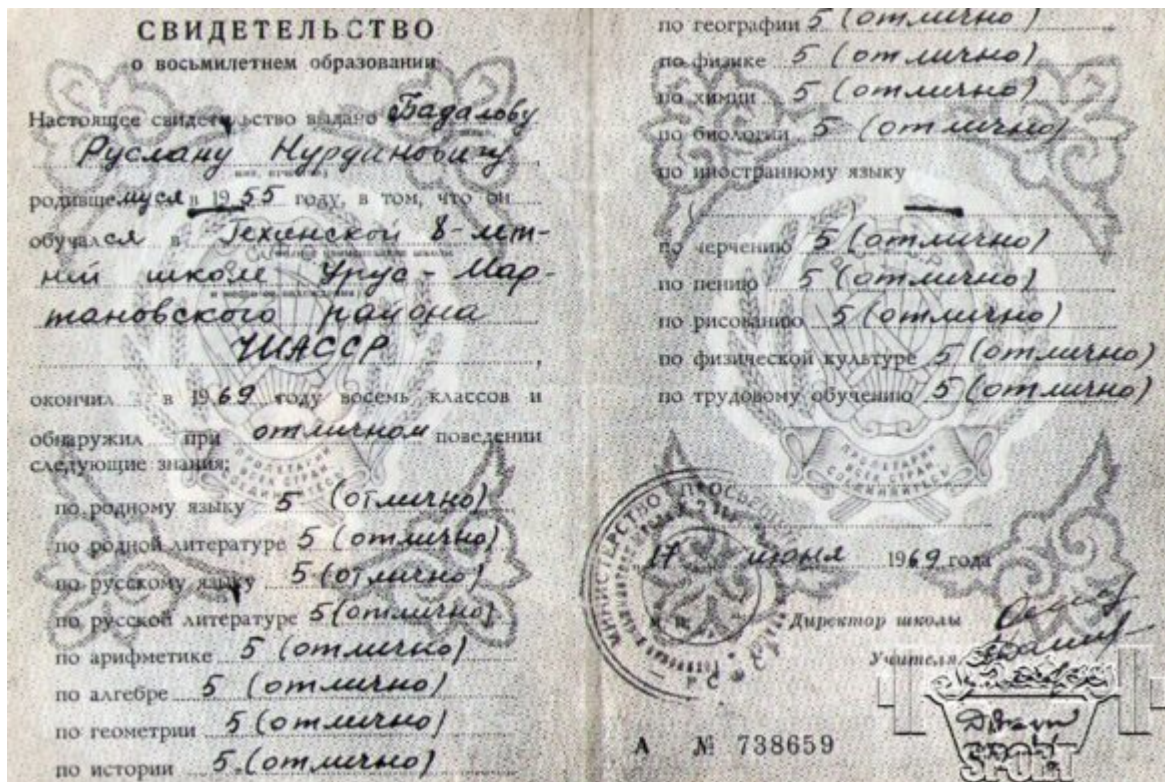 СВИДЕТЕЛЬСТВО
о восьмилетнем образовании
Настоящее свидетельство выдано Бадалову
Руслану Нурдиновичу
родившемуся в 1955 году, в том, что он
обучался в Гехинской 8-лет-
ней школе Урус-Мар-
тановского района
ЧИАССР
окончил в 1969 году восемь классов и
обнаружил при отличном поведении
следующие знания:
по родному языку 5 (отлично)
по родной литературе 5 (отлично)
по русскому языку 5 (отлично)
по русской литературе 5 (отлично)
по арифметике 5 (отлично)
по алгебре 5 (отлично)
по геометрии 5 (отлично)
по истории 5 (отлично)
по географии 5 (отлично)
по физике 5 (отлично)
по химии 5 (отлично)
по биологии 5 (отлично)
по иностранному языку
( ) —
по черчению 5 (отлично)
по пению 5 (отлично)
по рисованию 5 (отлично)
по физической культуре 5 (отлично)
по трудовому обучению 5 (отлично)
ПРОЛЕТАРИИ
ВСЕХ СТРАН
СОЕДИНЯЙТЕСЬ
МИНИСТЕРСТВО ПРОСВЕЩ
17 июня 1969 года
Директор школы
Учителя
А № 738659
SPORT